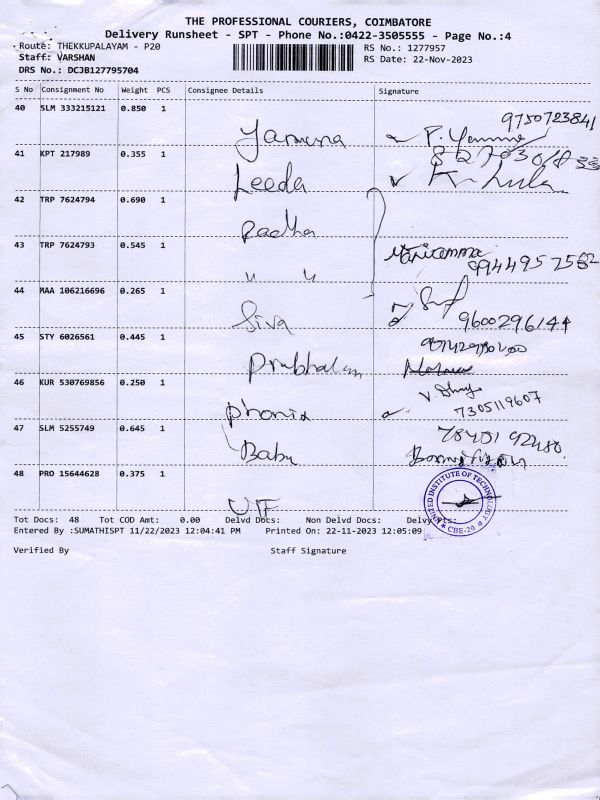 THE PROFESSIONAL COURIERS, COIMBATORE
Delivery Runsheet - SPT - Phone No.:0422-3505555 - Page No.:4
Route: THEKKUPALAYAM - P20
RS No.: 1277957
Staff: VARSHAN
RS Date: 22-Nov-2023
DRS No.: DCJB127795704
S No Consignment No Weight PCS Consignee Details Signature
40 SLM 333215121 0.850 1
9750723841
Yamuna P. Yamuna
41 KPT 217989 0.355 1
Leeda
42 TRP 7624794 0.690 1
Radha
43 TRP 7624793 0.545 1
Mariamma
〃 9944957562
44 MAA 106216696 0.265 1
Siva 9600296144
45 STY 6026561 0.445 1
Prabhakaran
46 KUR 530769856 0.250 1
Phonix 7305119607
47 SLM 5255749 0.645 1
Babu
48 PRO 15644628 0.375 1
UIT
UNITED INSTITUTE OF TECHNOLOGY
CBE-20
Tot Docs: 48 Tot COD Amt: 0.00 Delvd Docs: Non Delvd Docs: Delvy Pts:
Entered By :SUMATHISPT 11/22/2023 12:04:41 PM Printed On: 22-11-2023 12:05:09
Verified By Staff Signature